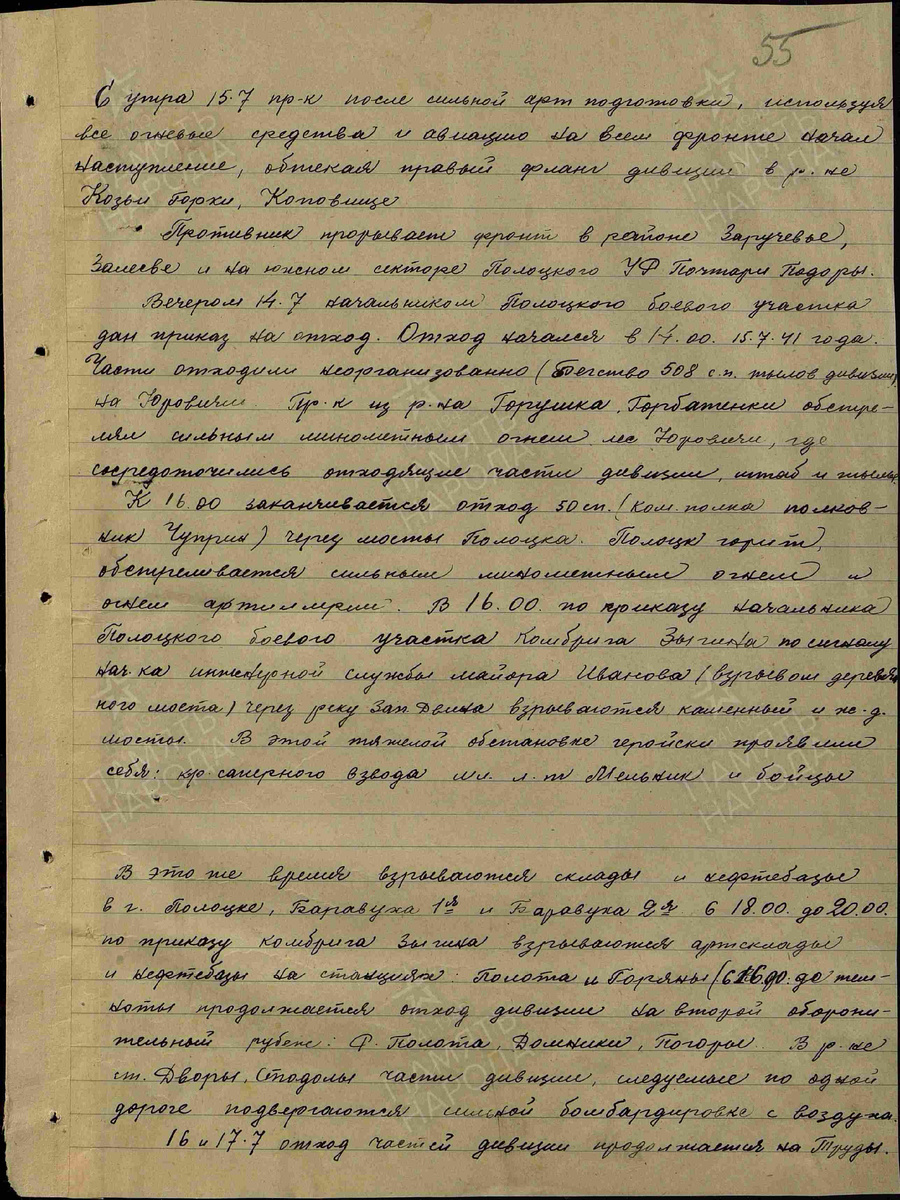 55
С утра 15.7 пр-к после сильной арт подготовки, используя
все огневые средства и авиацию на всем фронте начал
наступление, обтекая правый фланг дивизии в р-не
Козьи Горки, Коповище
Противник прорывает фронт в районе Заручевье,
Залесье и на южном секторе Полоцкого УР Почтари Подоры.
Вечером 14.7 начальником Полоцкого боевого участка
дан приказ на отход. Отход начался в 14.00. 15.7.41 года.
Части отходили неорганизованно (Бегство 508 с.п. тылов дивизии)
на Юровичи. Пр-к из р-на Горушка, Горбатенки обстре-
лял сильным минометным огнем лес Юровичи, где
сосредоточились отходящие части дивизии, штаб и тылы
К 16.00 заканчивается отход 50 сп. (Ком. полка полков-
ник Чуприн) через мосты Полоцка. Полоцк горит,
обстреливается сильным минометным огнем и
огнем артиллерии. В 16.00. по приказу начальника
Полоцкого боевого участка Комбрига Зыгина по сигналу
нач-ка инженерной службы майора Иванова (взрывом деревян
ного моста) через реку Зап. Двина взрываются каменный и ж.д.
мосты. В этой тяжелой обстановке геройски проявили
себя: к-р саперного взвода мл. л-т Мельник и бойцы
В это же время взрываются склады и нефтебазы
в г. Полоцке, Баравуха 1я и Баравуха 2я с 18.00. до 20.00.
по приказу комбрига Зыгина взрываются артсклады
и нефтебазы на станциях: Полота и Горяны (с 16.00. до тем-
ноты продолжается отход дивизии на второй оборони-
тельный рубеж: Ф. Полота, Домники, Погоры. В р-не
ст. Дворы, Стодолы части дивизии, следуемые по одной
дороге подвергаются сильной бомбардировке с воздуха.
16 и 17.7 отход частей дивизии продолжается на Труды.